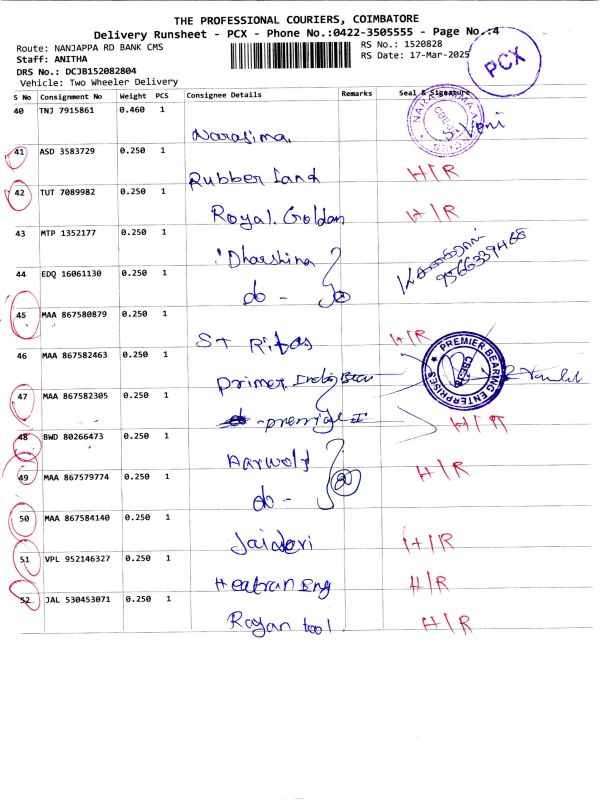 THE PROFESSIONAL COURIERS, COIMBATORE
Delivery Runsheet - PCX - Phone No.:0422-3505555 - Page No.:4
Route: NANJAPPA RD BANK CMS
RS No.: 1520828
Staff: ANITHA
RS Date: 17-Mar-2025
PCX
DRS No.: DCJB152082804
Vehicle: Two Wheeler Delivery
S No Consignment No Weight PCS Consignee Details Remarks Seal & Signature
40 TNJ 7915861 0.460 1
Narasima S. Veni
41 ASD 3583729 0.250 1
Rubber Land H/R
42 TUT 7089982 0.250 1
Royal. Goldan H/R
43 MTP 1352177 0.250 1
Dharshina
44 EDQ 16061130 0.250 1
do -
45 MAA 867580879 0.250 1
St Ritas H/R
46 MAA 867582463 0.250 1
PREMIER BEARING ENTERPRISES
Primer
47 MAA 867582305 0.250 1
H/R
48 BWD 80266473 0.250 1
Aarwolf
49 MAA 867579774 0.250 1 H/R
do -
50 MAA 867584140 0.250 1
Jaidevi H/R
51 VPL 952146327 0.250 1
Heatran Eng H/R
52 JAL 530453071 0.250 1
Rayan tool H/R